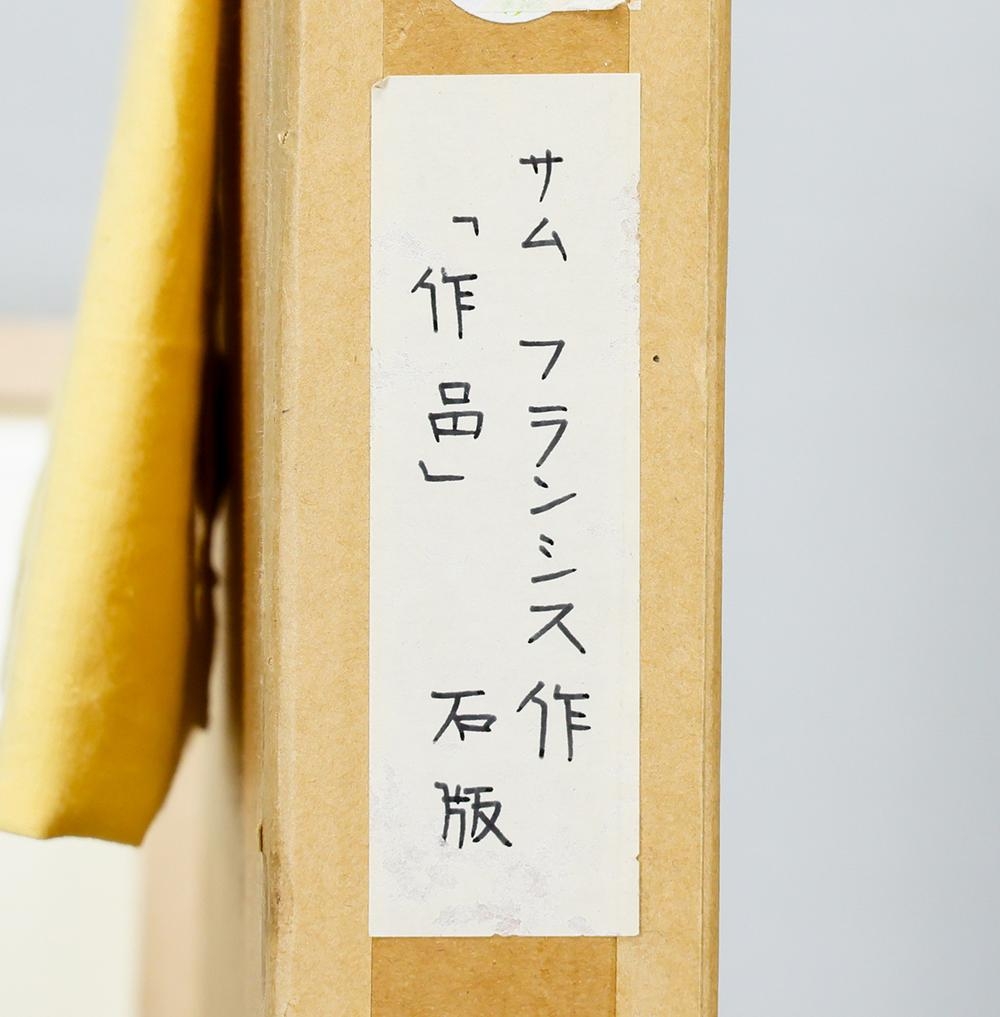 サム フランシス作
「作品」 石版